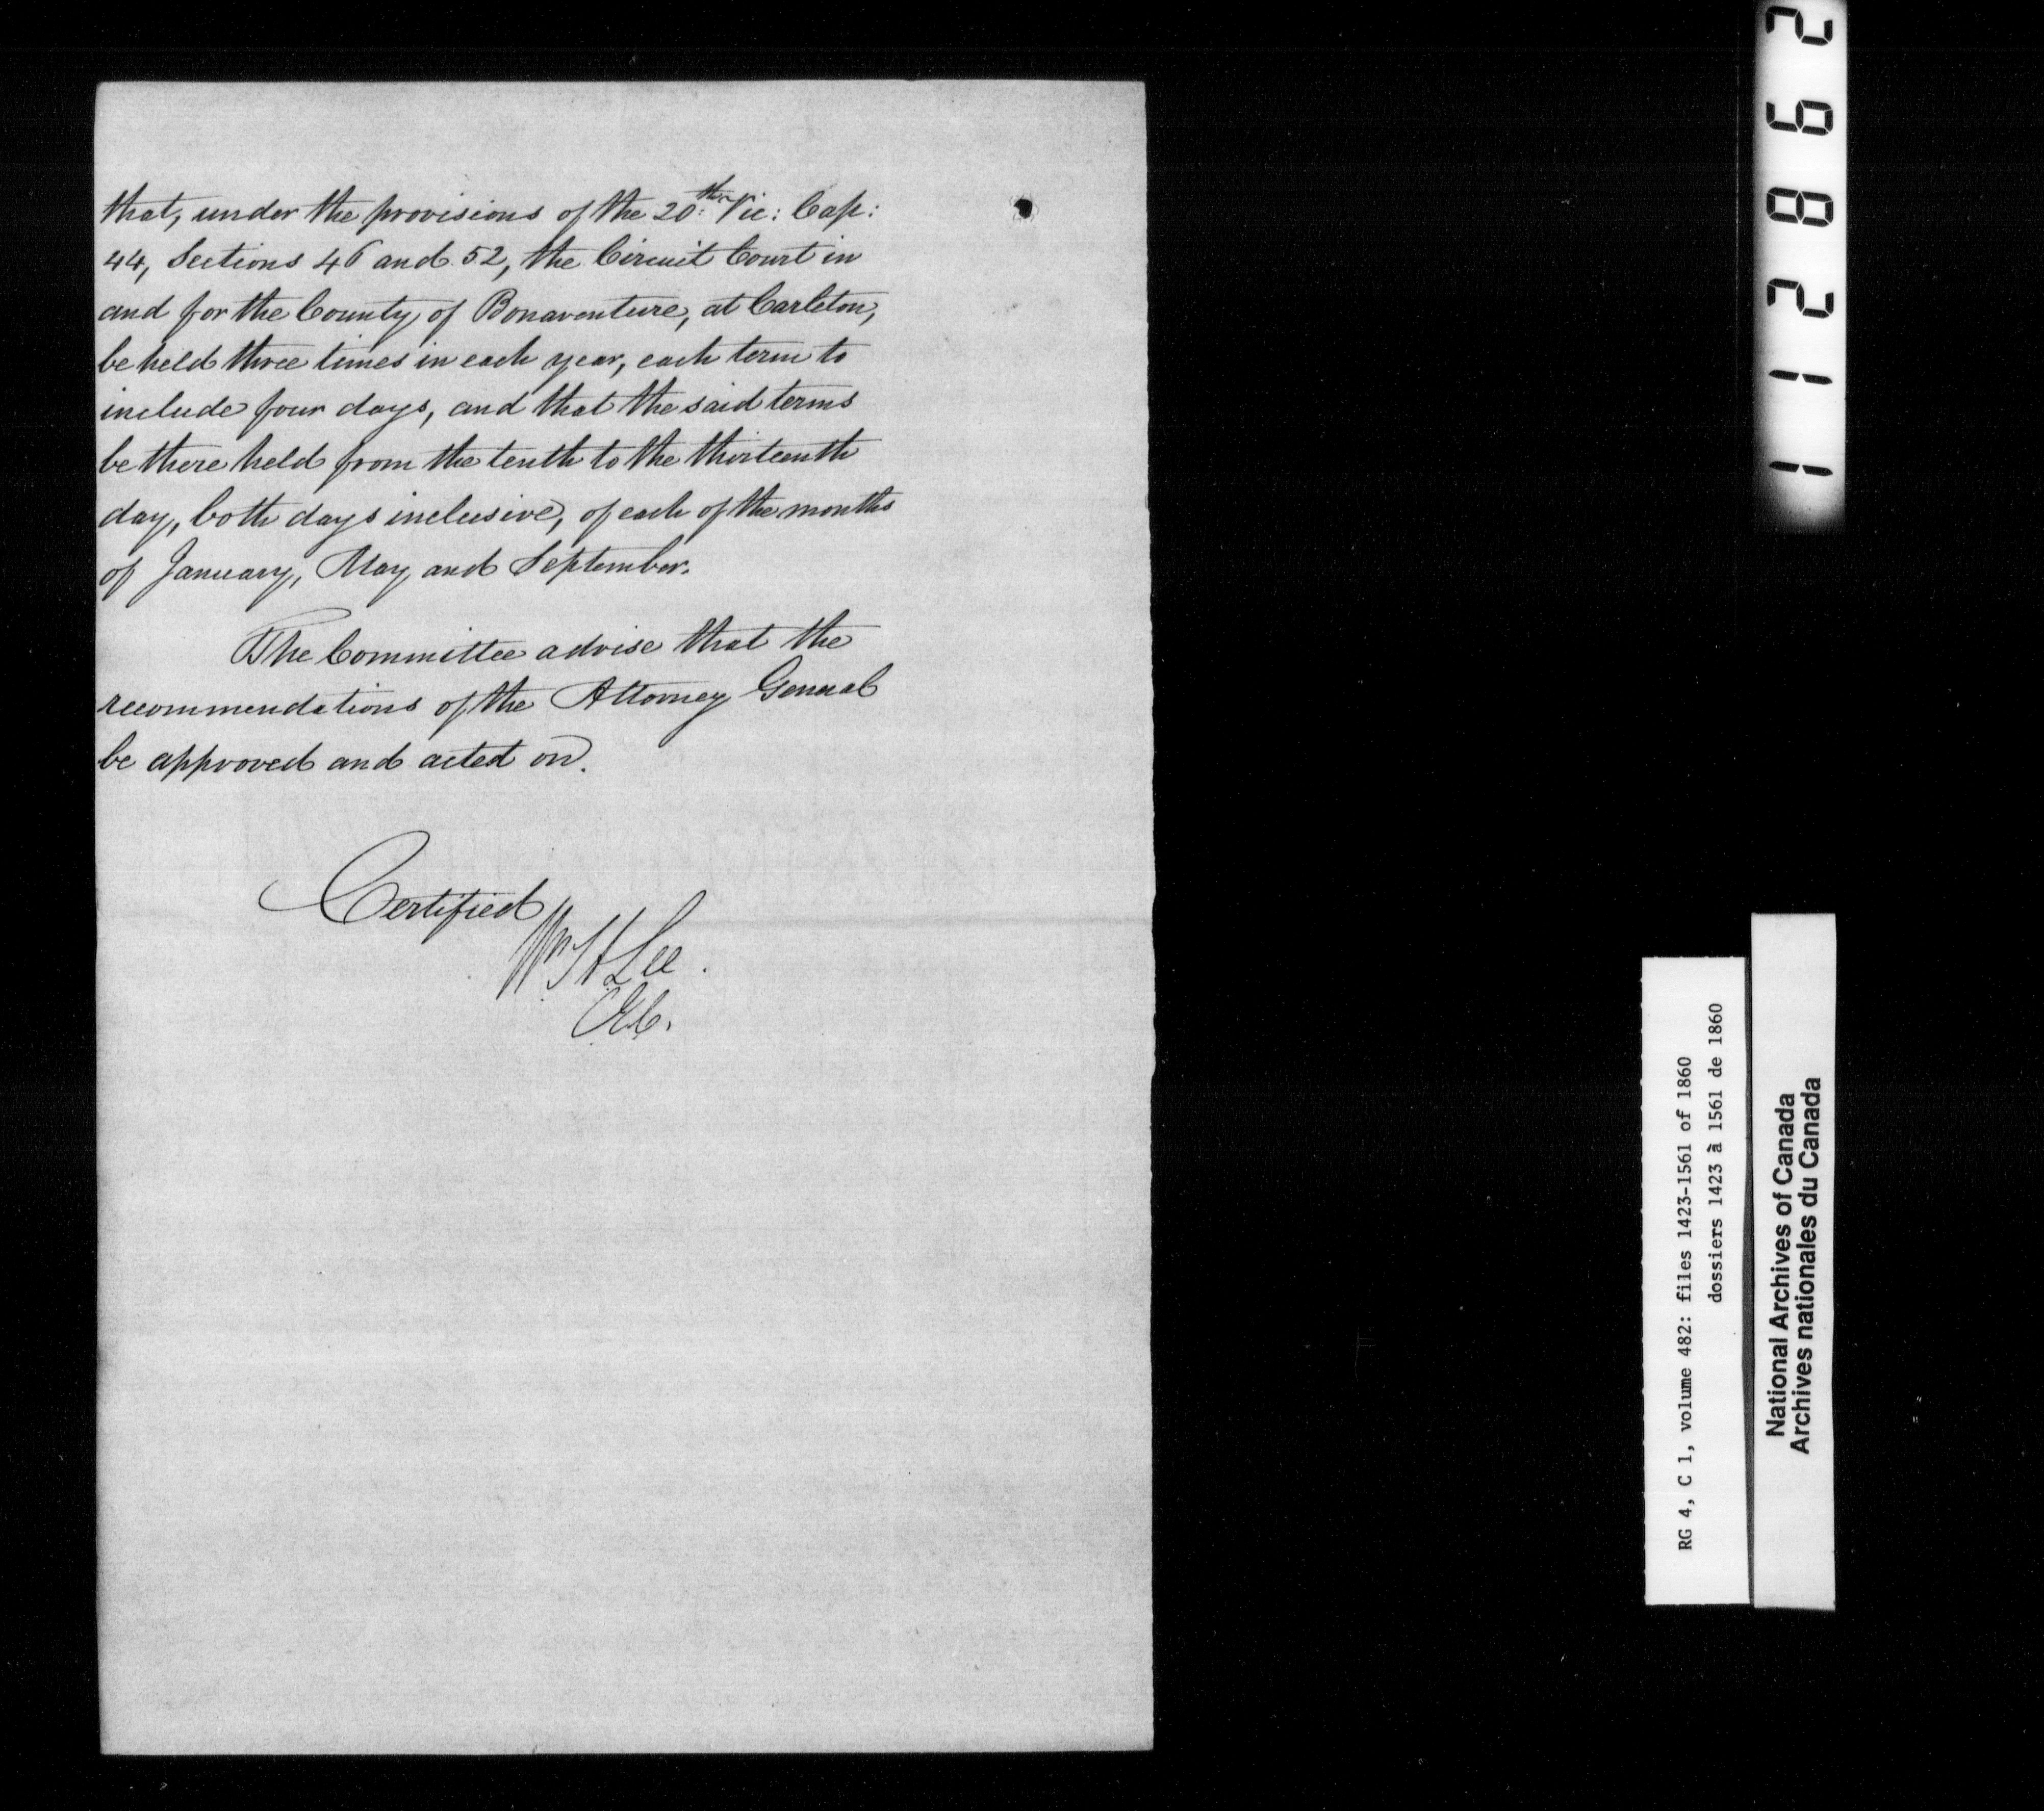 that, under the provisions of the 20th: Vic: Cap:
44, Sections 46 and 52, the Circuit Court in
and for the County of Bonaventure, at Carleton,
be held three times in each year, each term to
include four days, and that the said terms
be there held from the tenth to the thirteenth
day, both days inclusive, of each of the months
of January, May and September.
The Committee advise that the
recommendations of the Attorney General
be approved and acted on.
Certified
Wm H Lee.
112862
RG 4, C 1, volume 482: files 1423-1561 of 1860
dossiers 1423 à 1561 de 1860
National Archives of Canada
Archives nationales du Canada